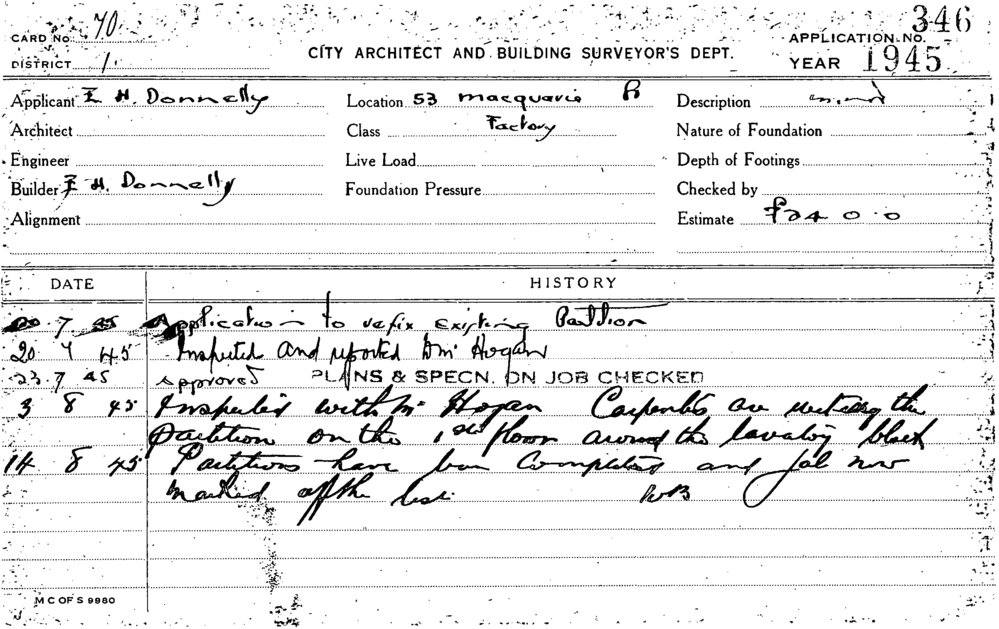 346
CARD No. 70 APPLICATION No.
DISTRICT 1. CITY ARCHITECT AND BUILDING SURVEYOR'S DEPT. YEAR 1945
Applicant E H. Donnelly Location 53 macquarie Description
Architect Class Factory Nature of Foundation
Engineer Live Load Depth of Footings
Builder E H. Donnelly Foundation Pressure Checked by
Alignment Estimate £240.0
DATE HISTORY
20 7 45 Application to refix existing Partition
20 7 45 Inspected and reported Hogan
23 7 45 Approved PLANS & SPECN. ON JOB CHECKED
3 8 45 Inspected with Mr Hogan Carpenters are the
partition on the 1st floor around the lavatory block
14 8 45 Partitions have been completed and job now
marked off the list.
M C OF S 9980